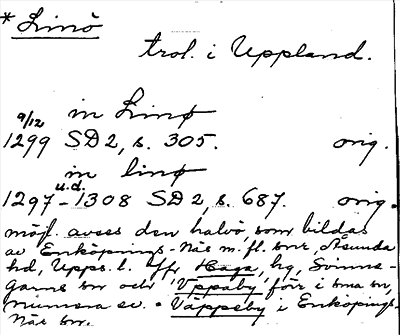 * Linö
trol. i Uppland.
9/12 in Linø
1299 SD 2, s. 305. orig.
in linø
1297 u.d. - 1308 SD 2, s. 687. orig.
möjl. avses den halvö, som bildas
av Enköpings-Näs m. fl. snr, Åsunda
hd, Upps. l. Jfr Haga, hg, Svinne-
garns sn och Uppaby förr i sma sn,
numera ev. = Väppeby i Enköpings-
Näs sn.